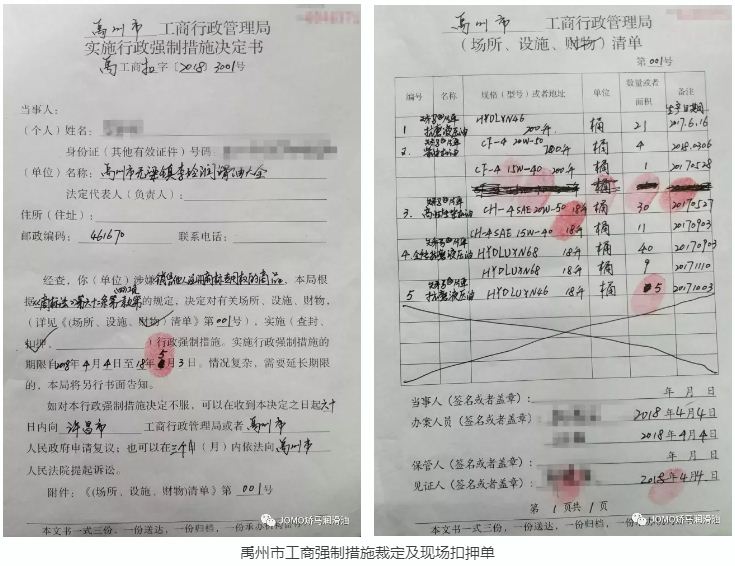 禹州市 工商行政管理局
实施行政强制措施决定书
禹工商扣字〔2018〕3001号
当事人：
（个人）姓名：
身份证（其他有效证件）号码：
（单位）名称：禹州市 润滑油大全
法定代表人（负责人）：
住所（住址）：
邮政编码：461670 联系电话：
经查，你（单位）涉嫌销售他人注册商标专用权的商品，本局根
据《商标法》第六十条第 款 的规定，决定对有关场所、设施、财物，
（详见《（场所、设施、财物）清单》第001号），实施（查封、
扣押 ）行政强制措施。实施行政强制措施的
期限自2018年4月4日至18年5月3日。情况复杂，需要延长期限
的，本局将另行书面告知。
如对本行政强制措施决定不服，可以在收到本决定之日起六十
日内向 许昌市 工商行政管理局或者 禹州市
人民政府申请复议；也可以在三个（月）内依法向 禹州市
人民法院提起诉讼。
附件：《（场所、设施、财物）清单》第 001号
本文书一式三份，一份送达，一份归档，一份承办机构
JOMO矫马润滑油
禹州市 工商行政管理局
（场所、设施、财物）清单
第001号
编号 名称 规格（型号）或者地址 单位 数量或者面积 备注
生产日期
1 抗磨液压油 HYDLUYN46 200升 桶 21 2017.6.16
2. CF-4 20W-50 200升 桶 4 2018.0306
CF-4 15W-40 200升 桶 1 20170528
桶
3. CH-4 SAE 20W-50 18升 桶 30 20170527
CH-4 SAE 15W-40 18升 桶 11 20170903
4. 液压油 HYDLUYN68 18升 桶 40 20170903
HYDLUYN68 18升 桶 9 20171110
5 抗磨液压油 HYDLUYN46 18升 桶 5 20171003
当事人（签名或者盖章）： 年 月 日
办案人员（签名或者盖章）： 2018年4月4日
2018年4月4日
保管人（签名或者盖章）： 年 月 日
见证人（签名或者盖章）： 2018年4月4日
第 1 页共 1 页
本文书一式三份，一份送达，一份归档，一份
JOMO矫马润滑油
禹州市工商强制措施裁定及现场扣押单